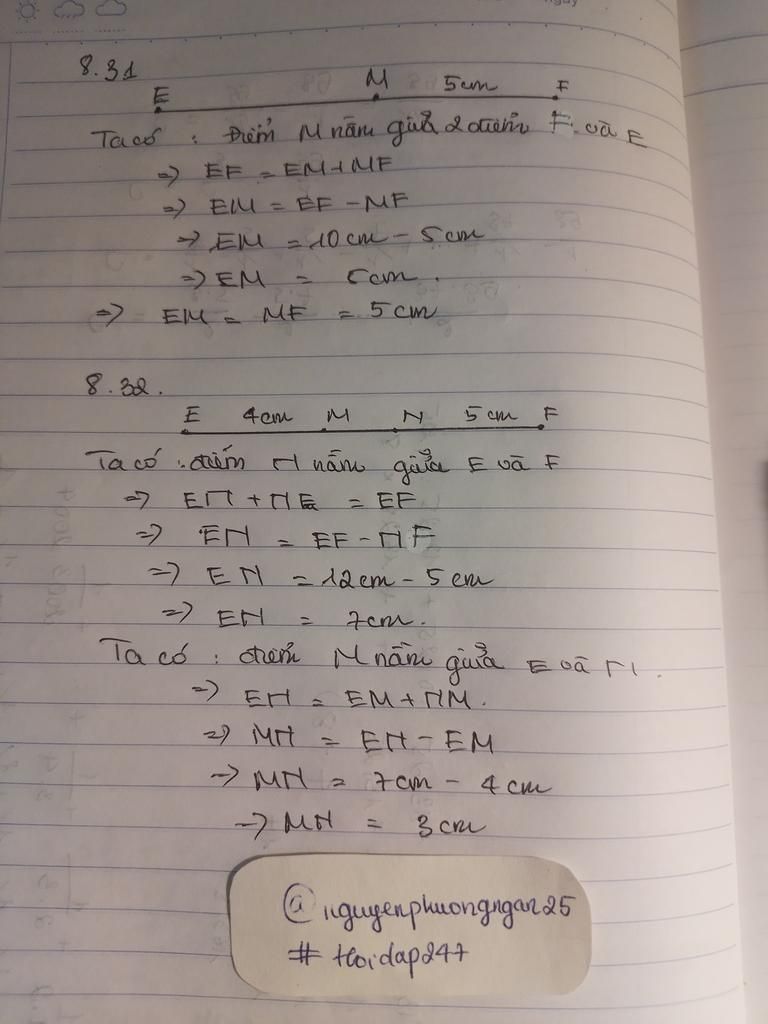 8.31
E M 5cm F
Ta có : Điểm M nằm giữa 2 điểm F và E
=> EF = EM + MF
=> EM = EF - MF
=> EM = 10cm - 5cm
=> EM = 5cm.
=> EM = MF = 5cm
8.32.
E 4cm M N 5cm F
Ta có : điểm N nằm giữa E và F
=> EN + NE = EF
=> EN = EF - NF
=> EN = 12cm - 5cm
=> EN = 7cm.
Ta có : điểm M nằm giữa E và N.
=> EN = EM + NM.
=> MN = EN - EM
=> MN = 7cm - 4cm
=> MN = 3cm
@nguyenphuongngan25
# hoidap247